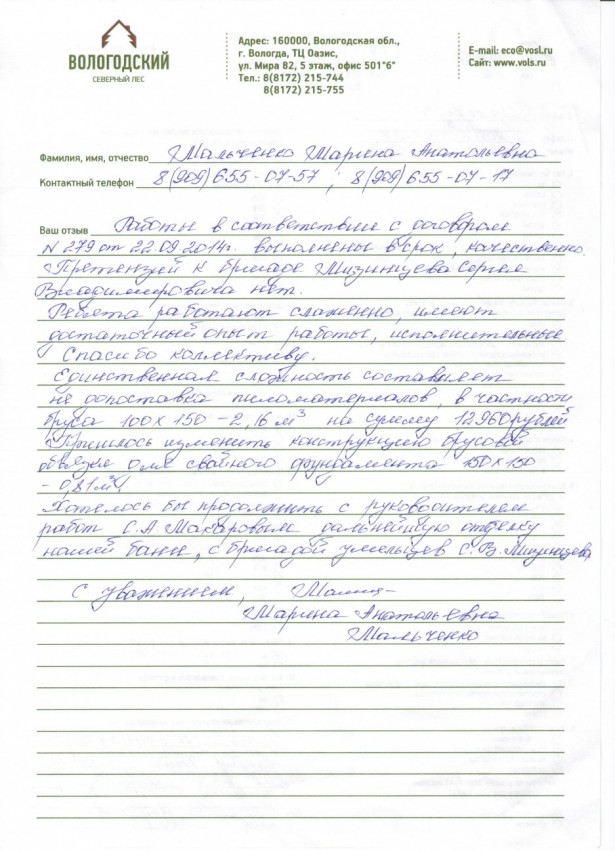 ВОЛОГОДСКИЙ
СЕВЕРНЫЙ ЛЕС
Адрес: 160000, Вологодская обл.,
г. Вологда, ТЦ Оазис,
ул. Мира 82, 5 этаж, офис 501"б"
Тел.: 8(8172) 215-744
8(8172) 215-755
E-mail: eco@vosl.ru
Сайт: www.vols.ru
Фамилия, имя, отчество Мальченко Марина Анатольевна
Контактный телефон 8(909) 655-07-57; 8(909) 655-07-17
Ваш отзыв Работы в соответствие с договором
N 279 от 22.09.2014г. выполнены в срок, качественно.
Претензий к бригаде Мизинцева Сергея
Владимировича нет.
Ребята работают слаженно, имеют
достаточный опыт работы, исполнительные
Спасибо коллективу.
Единственная сложность составляет
не допоставка пиломатериалов, в частности
бруса 100х150 - 2,16 м³ на сумму 12960 рублей
Пришлось изменить конструкцию брусовой
обвязки свайного фундамента 150х150
- 0,81м³
Хотелось бы продолжить с руководителем
работ С.А. Макаровым дальнейшую отделку
нашей бани, с бригадой умельцев С.В. Мизинцева,
С уважением,
Марина Анатольевна
Мальченко